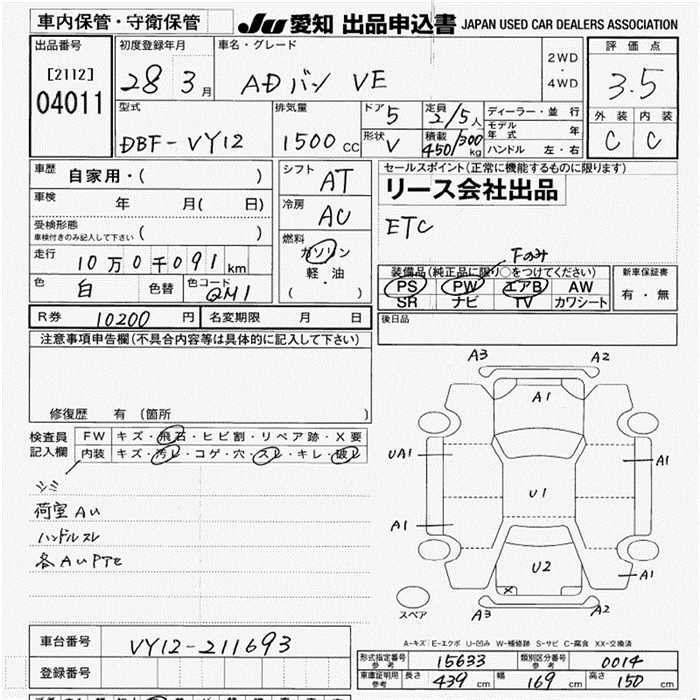 車内保管・守衛保管 JU 愛知 出品申込書 JAPAN USED CAR DEALERS ASSOCIATION
出品番号 初度登録年月 車名・グレード 評価点
[2112] 28 3月 ADバン VE 2WD・4WD 3.5
04011
型式 排気量 ドア 5 定員 2/5人 ディーラー・並行 外装 内装
DBF-VY12 1500cc 形状 V 積載 450/300kg モデル年式 年 C C
ハンドル 左・右
車歴 自家用・( ) シフト AT セールスポイント(正常に機能するものに限ります)
リース会社出品
車検 年 月( 日) 冷房 AC
ETC
受検形態 車検付きのみ記入して下さい ( )
燃料 ガソリン 軽・油 ( ・ )
走行 10万0千091km
Fのみ
装備品(純正品に限り○をつけてください) 新車保証書
色 白 色替 色コード QM1 PS PW エアB AW 有・無
SR ナビ TV カワシート
R券 10200円 名変期限 月 日 後日品
注意事項申告欄(不具合内容等は具体的に記入して下さい)
修復歴 有 (箇所
検査員記入欄 FW キズ・飛石・ヒビ割・リペア跡・X要
内装 キズ・汚レ・コゲ・穴・スレ・キレ・破レ
シミ
荷室AU
ハンドルスレ
各AUPTE
A3 A2
A1
UA1 A1
U1
A1
U2 A1
X
スペア A3 A2
A-キズ E-エクボ U-凹み W-補修跡 S-サビ C-腐食 XX-交換済
車台番号 VY12-211693
形式指定番号 参考 15633 類別区分番号 参考 0014
登録番号
車庫証明用 参考 長さ 439cm 幅 169cm 高さ 150cm